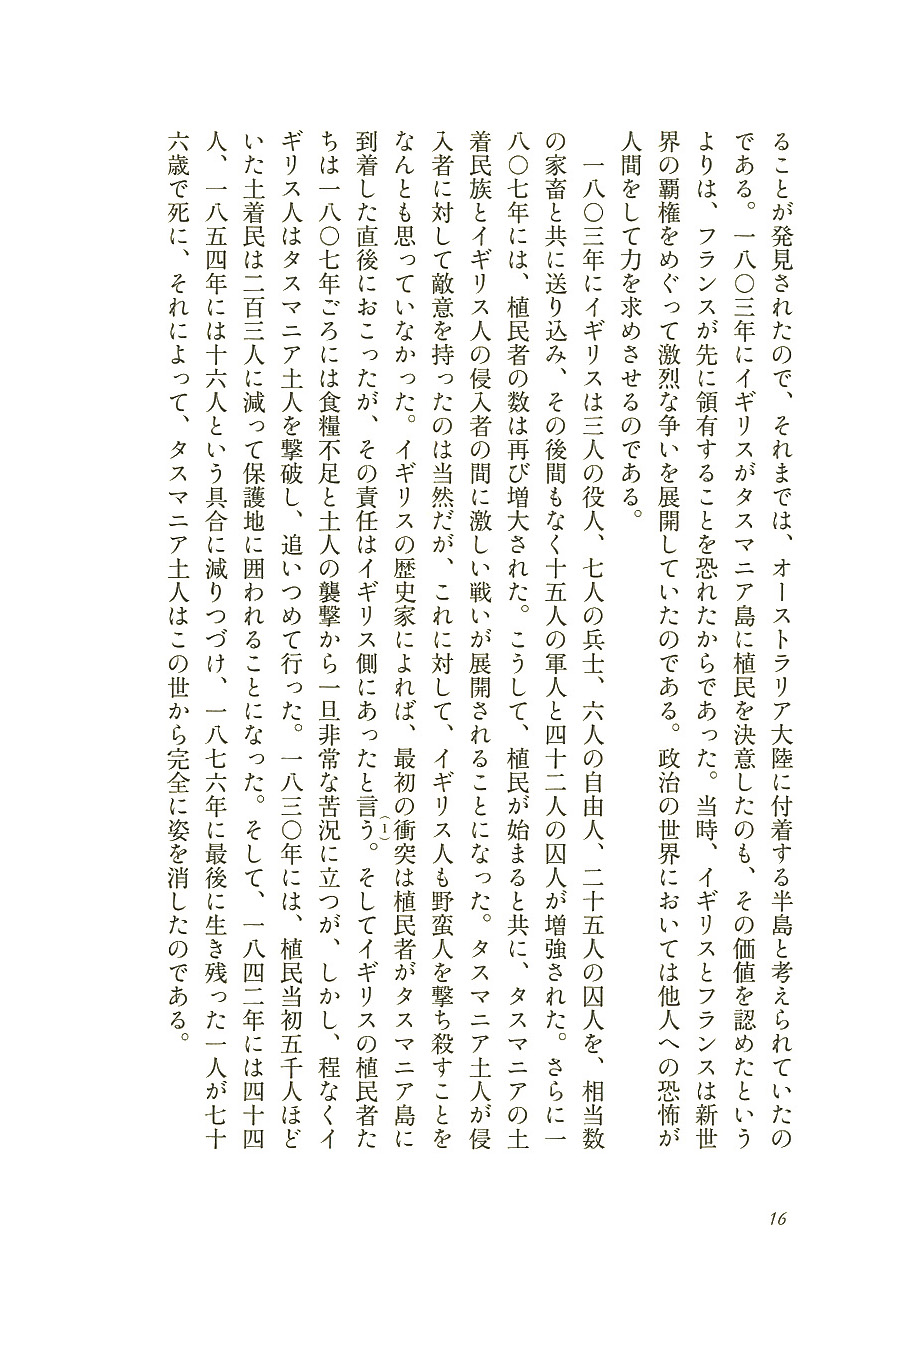 ることが発見されたので、それまでは、オーストラリア大陸に付着する半島と考えられていたの
である。一八〇三年にイギリスがタスマニア島に植民を決意したのも、その価値を認めたという
よりは、フランスが先に領有することを恐れたからであった。当時、イギリスとフランスは新世
界の覇権をめぐって激烈な争いを展開していたのである。政治の世界においては他人への恐怖が
人間をして力を求めさせるのである。
一八〇三年にイギリスは三人の役人、七人の兵士、六人の自由人、二十五人の囚人を、相当数
の家畜と共に送り込み、その後間もなく十五人の軍人と四十二人の囚人が増強された。さらに一
八〇七年には、植民者の数は再び増大された。こうして、植民が始まると共に、タスマニアの土
着民族とイギリス人の侵入者の間に激しい戦いが展開されることになった。タスマニア土人が侵
入者に対して敵意を持ったのは当然だが、これに対して、イギリス人も野蛮人を撃ち殺すことを
なんとも思っていなかった。イギリスの歴史家によれば、最初の衝突は植民者がタスマニア島に
到着した直後におこったが、その責任はイギリス側にあったと言う(1)。そしてイギリスの植民者た
ちは一八〇七年ごろには食糧不足と土人の襲撃から一旦非常な苦況に立つが、しかし、程なくイ
ギリス人はタスマニア土人を撃破し、追いつめて行った。一八三〇年には、植民当初五千人ほど
いた土着民は二百三人に減って保護地に囲われることになった。そして、一八四二年には四十四
人、一八五四年には十六人という具合に減りつづけ、一八七六年に最後に生き残った一人が七十
六歳で死に、それによって、タスマニア土人はこの世から完全に姿を消したのである。
16